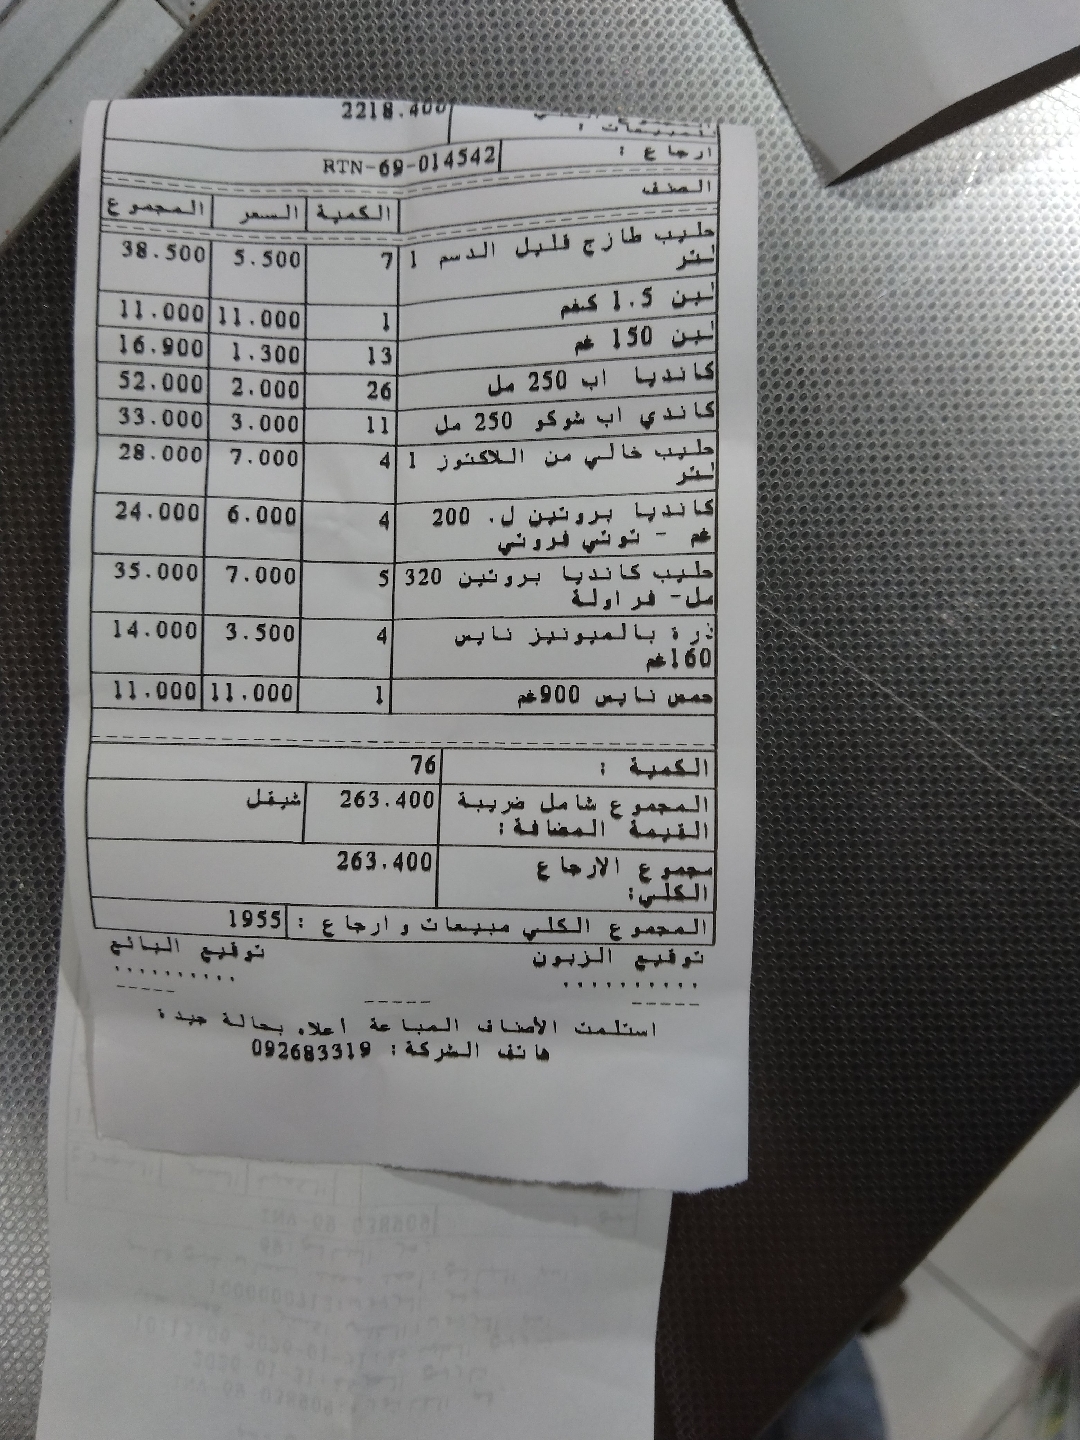 2218.400
للمبيعات :
ارجاع : RTN-69-014542
الصنف
الكمية السعر المجموع
حليب طازج قليل الدسم 1 7 5.500 38.500
لتر
لبن 1.5 كغم 1 11.000 11.000
لبن 150 غم 13 1.300 16.900
كانديا اب 250 مل 26 2.000 52.000
كاندي اب شوكو 250 مل 11 3.000 33.000
حليب خالي من اللاكتوز 1 4 7.000 28.000
لتر
كانديا بروتين ل. 200 4 6.000 24.000
غم - توتي فروتي
حليب كانديا بروتين 320 5 7.000 35.000
مل- فراولة
ذرة بالميونيز نايس 4 3.500 14.000
160غم
حمص نايس 900غم 1 11.000 11.000
الكمية : 76
المجموع شامل ضريبة 263.400 شيقل
القيمة المضافة:
مجموع الارجاع 263.400
الكلي:
المجموع الكلي مبيعات وارجاع : 1955
توقيع الزبون توقيع البائع
.......... ..........
----- ----- -----
استلمت الأصناف المباعة أعلاه بحالة جيدة
هاتف الشركة: 092683319